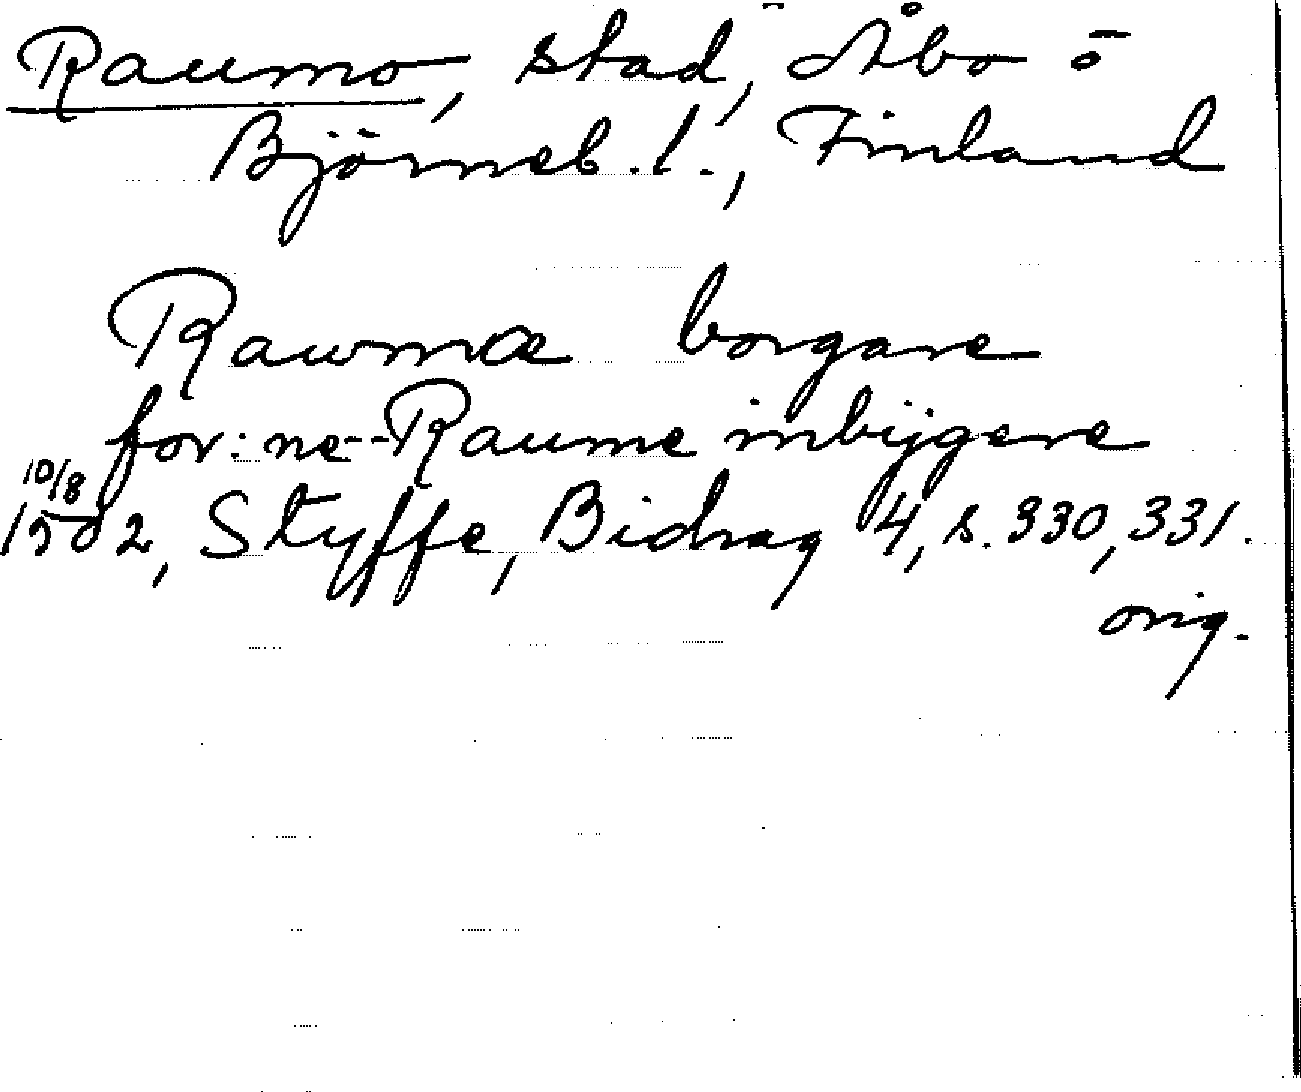 Raumo, stad, Åbo o
Björneb. l., Finland
Rawmæ borgare
for: ne-- Raume inbÿgere
10/8
1502, Styffe, Bidrag 4, s. 330, 331.
orig.